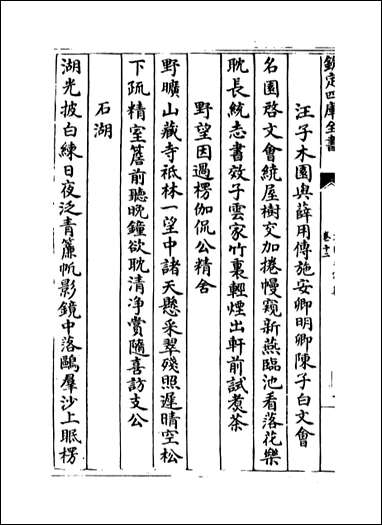 欽定四庫全書
卷十三
汪子木園與薛用傅施安卿明卿陳子白文會
名園啓文會繞屋樹交加捲幔窺新燕臨池看落花樂
耽長統志書效子雲家竹裏輕煙出軒前試煮茶
野望因過楞伽侃公精舍
野曠山藏寺祇林一望中諸天懸采翠殘照遲晴空松
下疏精室簷前聽晚鐘欲耽清净賞隨喜訪支公
石湖
湖光披白練日夜泛青簾帆影鏡中落鷗羣沙上眠楞